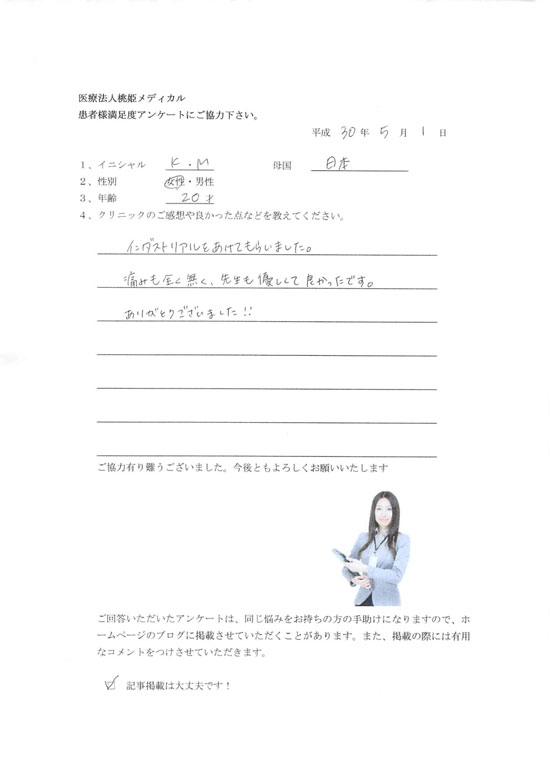 医療法人桃姫メディカル
患者様満足度アンケートにご協力下さい。
平成 30年 5月 1日
1、イニシャル K.M 母国 日本
2、性別 女性・男性
3、年齢 20才
4、クリニックのご感想や良かった点などを教えてください。
インダストリアルをあけてもらいました。
痛みも全く無く、先生も優しくて良かったです。
ありがとうございました!!
ご協力有り難うございました。今後ともよろしくお願いいたします
ご回答いただいたアンケートは、同じ悩みをお持ちの方の手助けになりますので、ホ
ームページのブログに掲載させていただくことがあります。また、掲載の際には有用
なコメントをつけさせていただきます。
☑ 記事掲載は大丈夫です！